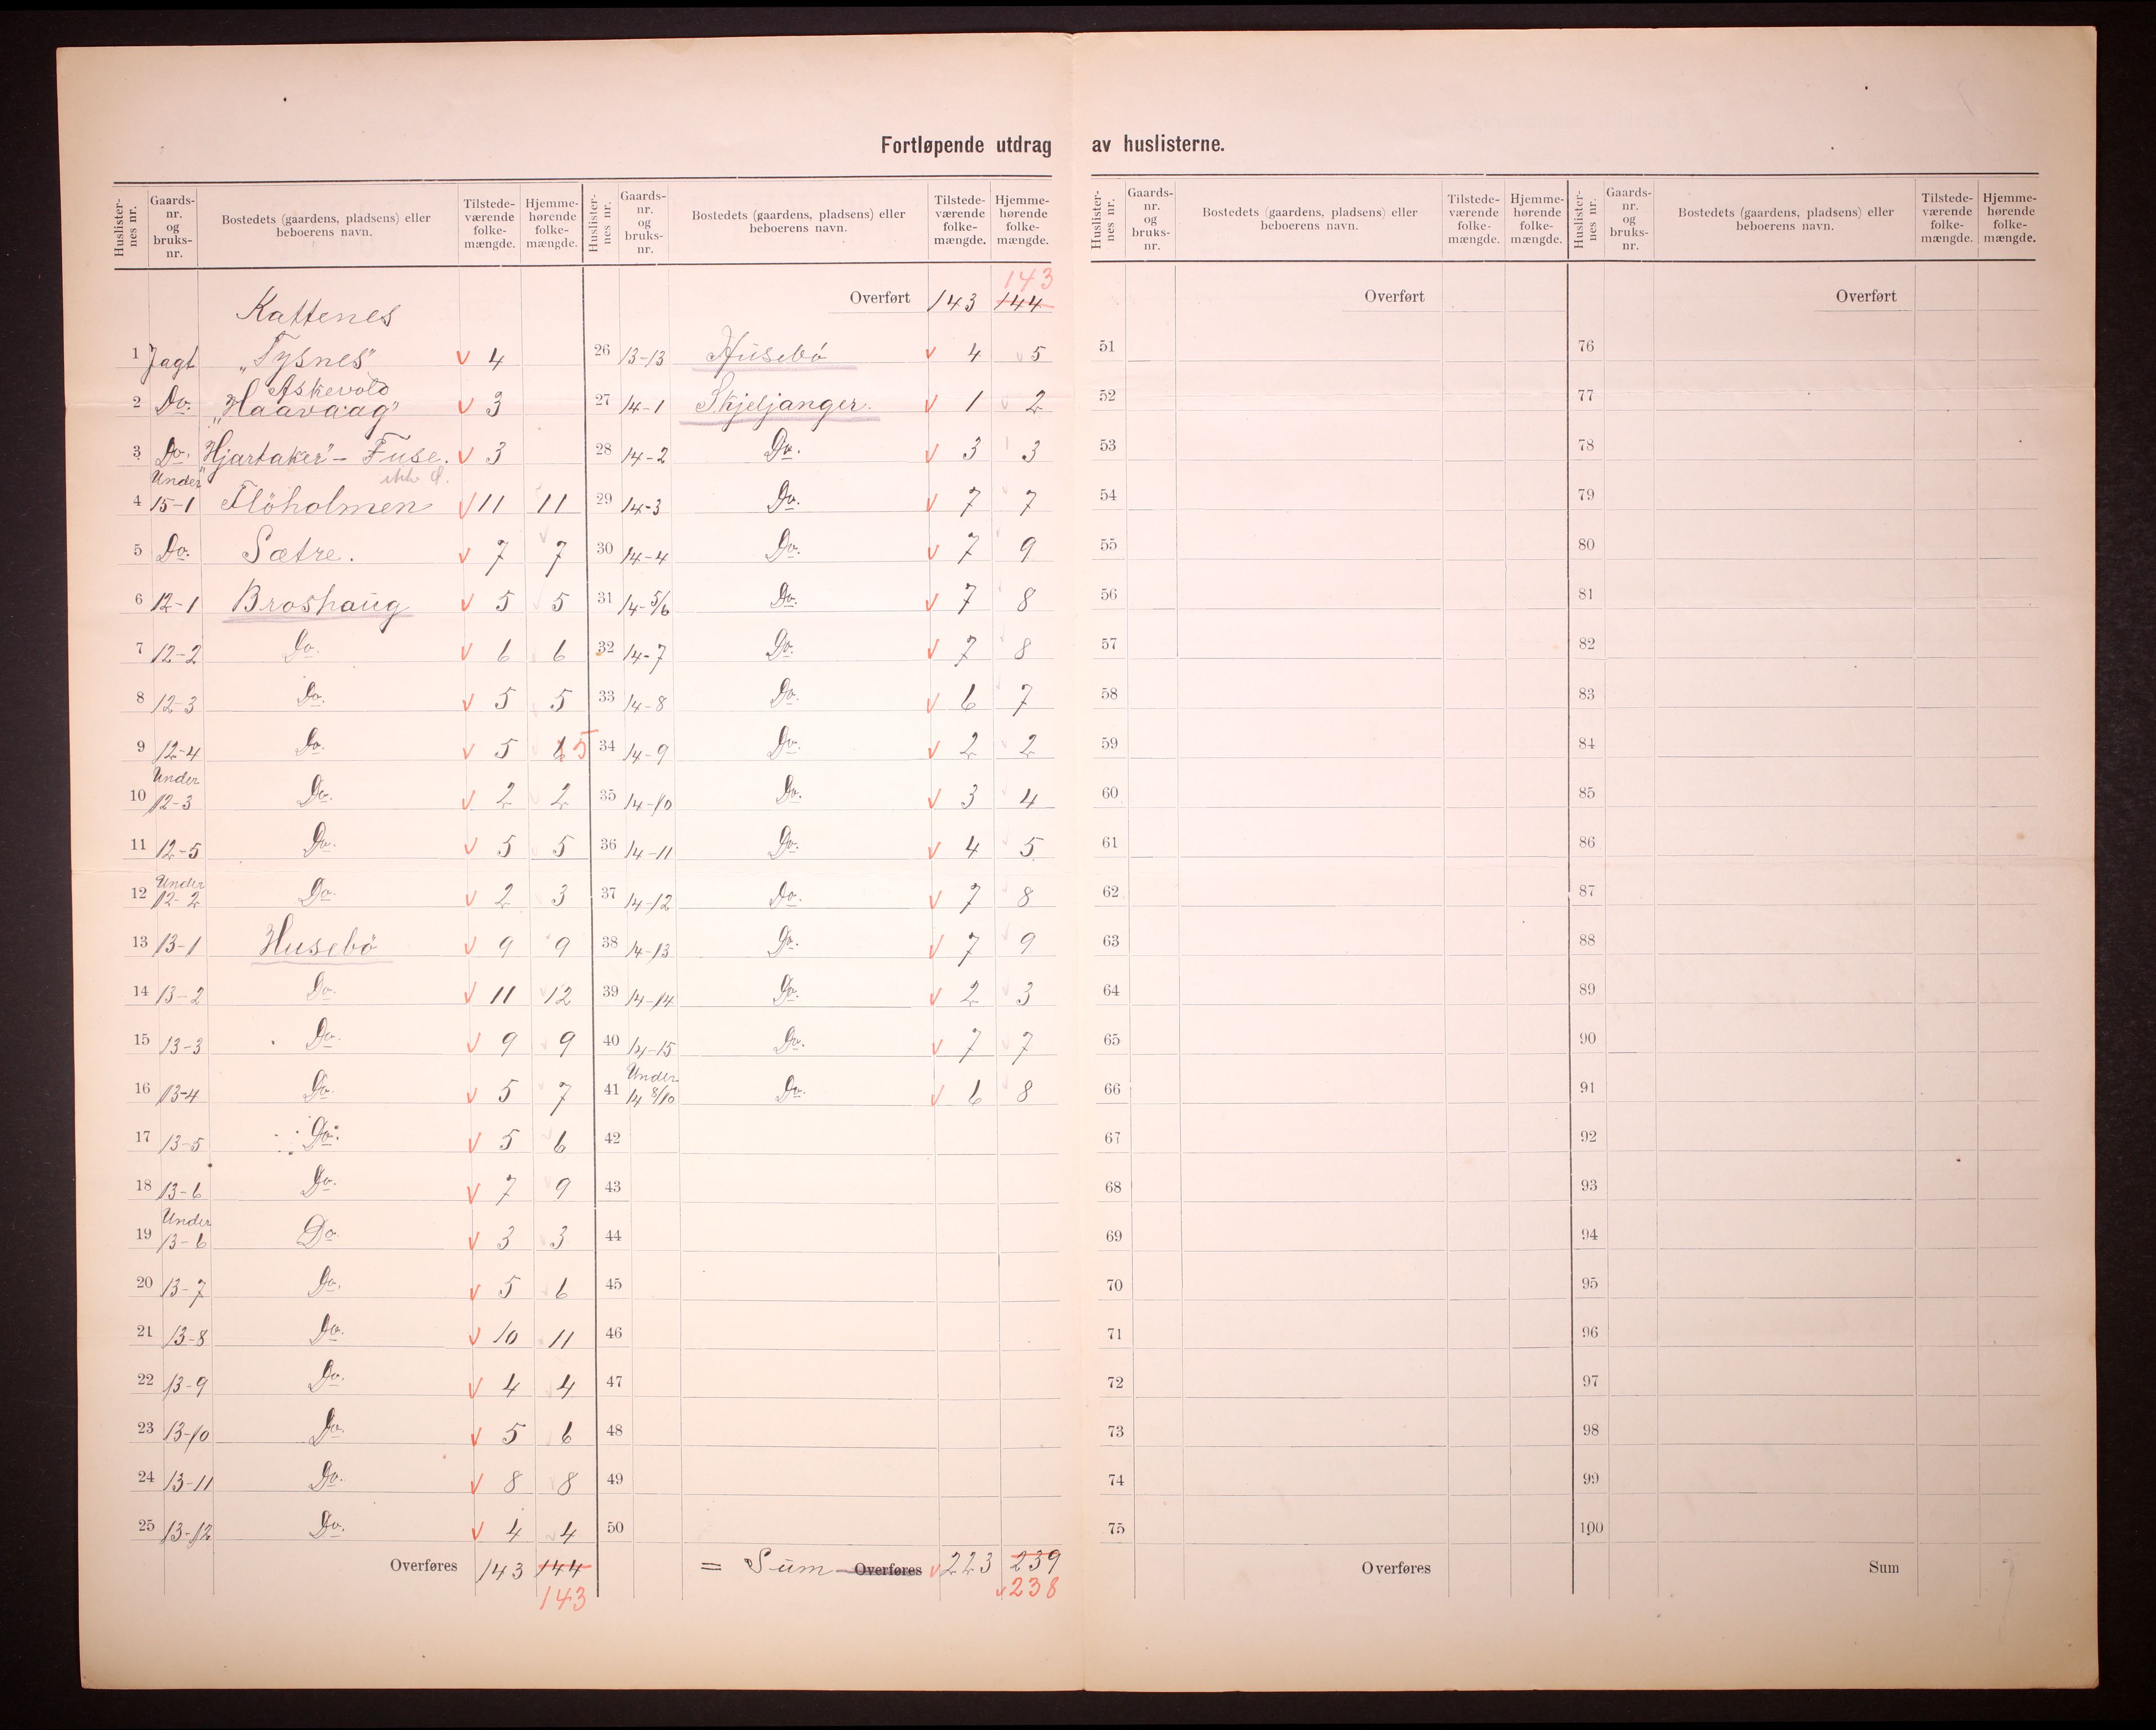 Fortløpende utdrag av huslisterne.
Huslister-nes nr. Gaards-nr. og bruks-nr. Bostedets (gaardens, pladsens) eller beboerens navn. Tilstede-værende folke-mængde. Hjemme-hørende folke-mængde.
Kattenes
1 Jagt „Tysnes" v 4
2 Do. Askevold „Haavaag" v 3
3 Do. „Hjartaker" - Fuse. v 3
4 Under 15-1 Flöholmen v 11 11
5 Do. Sætre. v 7 7
6 12-1 Broshaug v 5 5
7 12-2 Do. v 6 6
8 12-3 Do. v 5 5
9 12-4 Do. v 5 6 5
10 Under 12-3 Do. v 2 2
11 12-5 Do. v 5 5
12 Under 12-2 Do. v 2 3
13 13-1 Husebö v 9 9
14 13-2 Do. v 11 12
15 13-3 Do. v 9 9
16 13-4 Do. v 5 7
17 13-5 Do. v 5 6
18 13-6 Do. v 7 9
19 Under 13-6 Do. v 3 3
20 13-7 Do. v 5 6
21 13-8 Do. v 10 11
22 13-9 Do. v 4 4
23 13-10 Do. v 5 6
24 13-11 Do. v 8 8
25 13-12 Do. v 4 4
Overføres 143 144
143
Huslister-nes nr. Gaards-nr. og bruks-nr. Bostedets (gaardens, pladsens) eller beboerens navn. Tilstede-værende folke-mængde. Hjemme-hørende folke-mængde.
143
Overført 143 144
26 13-13 Husebö v 4 5
27 14-1 Skjeljanger. v 1 2
28 14-2 Do. v 3 3
29 14-3 Do. v 7 7
30 14-4 Do. v 7 9
31 14-5/6 Do. v 7 8
32 14-7 Do. v 7 8
33 14-8 Do. v 6 7
34 14-9 Do. v 2 2
35 14-10 Do. v 3 4
36 14-11 Do. v 4 5
37 14-12 Do. v 7 8
38 14-13 Do. v 7 9
39 14-14 Do. v 2 3
40 14-15 Do. v 7 7
41 Under 14 8/10 Do. v 6 8
42
43
44
45
46
47
48
49
50
= Sum Overføres v 223 239
v 238
Huslister-nes nr. Gaards-nr. og bruks-nr. Bostedets (gaardens, pladsens) eller beboerens navn. Tilstede-værende folke-mængde. Hjemme-hørende folke-mængde.
Overført
51
52
53
54
55
56
57
58
59
60
61
62
63
64
65
66
67
68
69
70
71
72
73
74
75
Overføres
Huslister-nes nr. Gaards-nr. og bruks-nr. Bostedets (gaardens, pladsens) eller beboerens navn. Tilstede-værende folke-mængde. Hjemme-hørende folke-mængde.
Overført
76
77
78
79
80
81
82
83
84
85
86
87
88
89
90
91
92
93
94
95
96
97
98
99
100
Sum